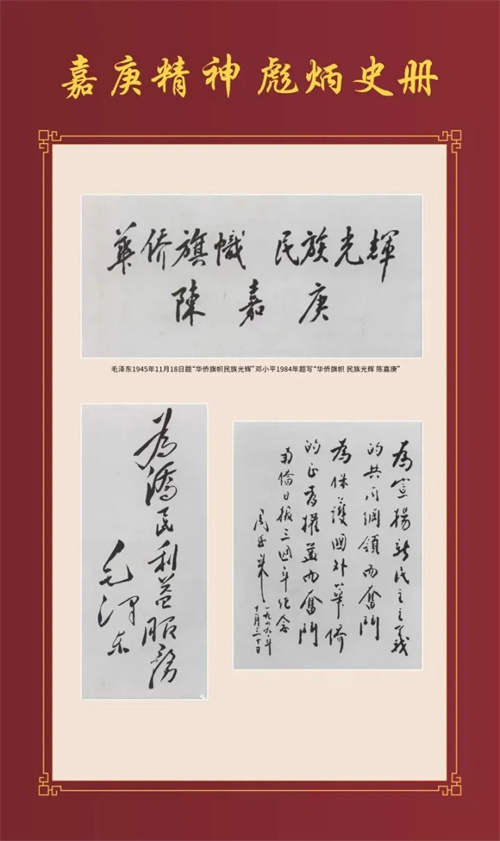 嘉庚精神 彪炳史册
華侨旗幟 民族光輝
陳嘉庚
毛泽东1945年11月18日题“华侨旗帜民族光辉”邓小平1984年题写“华侨旗帜 民族光辉 陈嘉庚”
為僑民利益服務
毛澤东
為宣揚新民主主義
的共同綱領而奮鬥
為保護國外華僑
的正當權益而奮鬥
南僑日報三週年纪念
周恩来
一九四九年
十月三十日